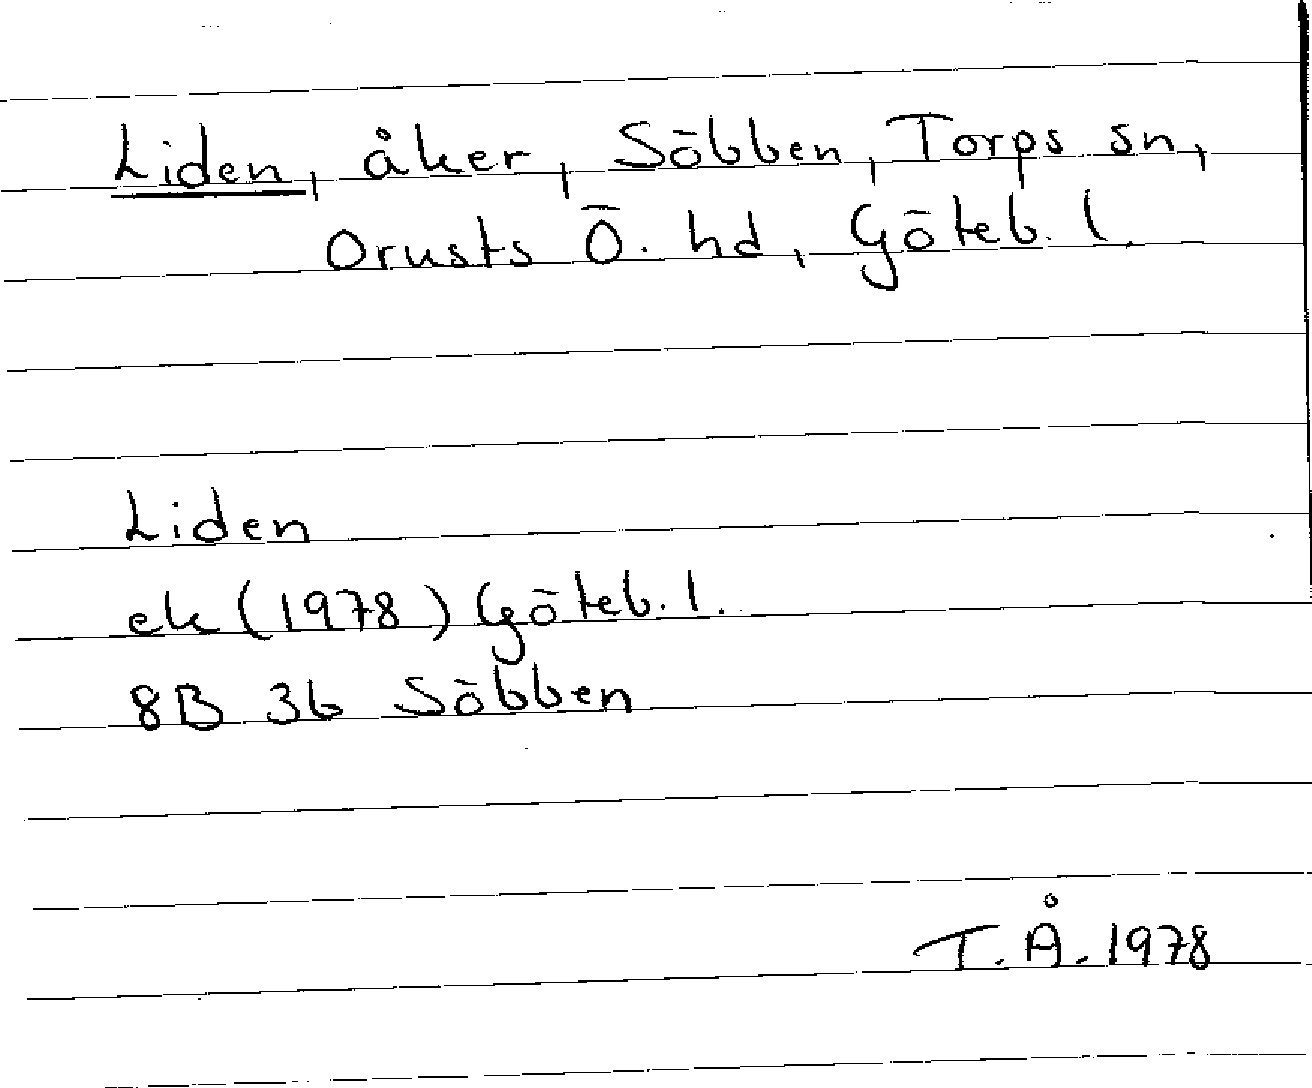 Liden, åker, Söbben, Torps sn,
Orusts Ö. hd, Göteb. l.
Liden
ek (1978) Göteb. l.
8B 3b Söbben
T. Å. 1978